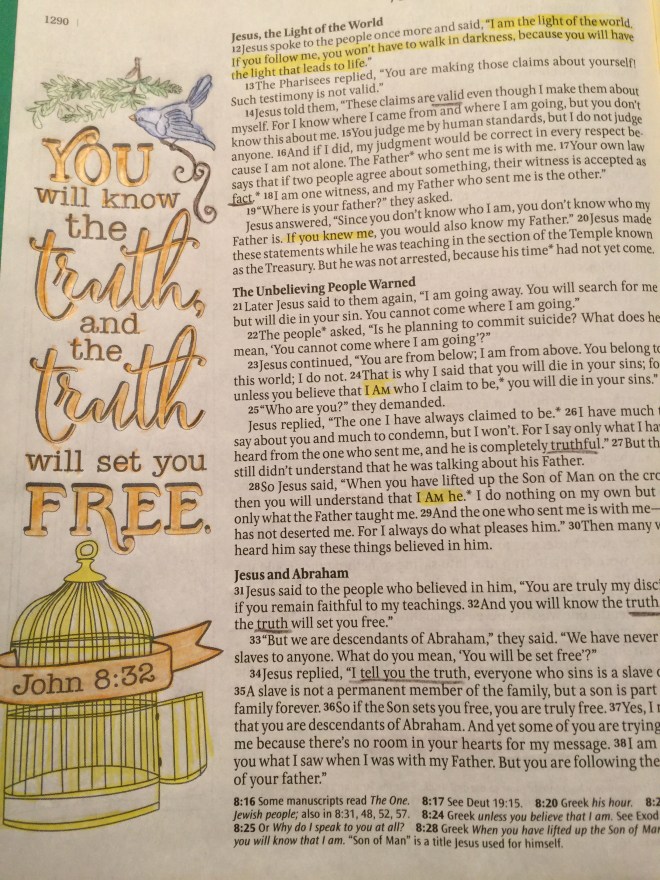 1290
YOU
will know
the
truth,
and
the
truth
will set you
FREE.
John 8:32
Jesus, the Light of the World
12Jesus spoke to the people once more and said, "I am the light of the world.
If you follow me, you won't have to walk in darkness, because you will have
the light that leads to life."
13The Pharisees replied, "You are making those claims about yourself!
Such testimony is not valid."
14Jesus told them, "These claims are valid even though I make them about
myself. For I know where I came from and where I am going, but you don't
know this about me. 15You judge me by human standards, but I do not judge
anyone. 16And if I did, my judgment would be correct in every respect be-
cause I am not alone. The Father* who sent me is with me. 17Your own law
says that if two people agree about something, their witness is accepted as
fact.* 18I am one witness, and my Father who sent me is the other."
19"Where is your father?" they asked.
Jesus answered, "Since you don't know who I am, you don't know who my
Father is. If you knew me, you would also know my Father." 20Jesus made
these statements while he was teaching in the section of the Temple known
as the Treasury. But he was not arrested, because his time* had not yet come.
The Unbelieving People Warned
21Later Jesus said to them again, "I am going away. You will search for me
but will die in your sin. You cannot come where I am going."
22The people* asked, "Is he planning to commit suicide? What does he
mean, 'You cannot come where I am going'?"
23Jesus continued, "You are from below; I am from above. You belong to
this world; I do not. 24That is why I said that you will die in your sins; fo
unless you believe that I AM who I claim to be,* you will die in your sins."
25"Who are you?" they demanded.
Jesus replied, "The one I have always claimed to be.* 26I have much
say about you and much to condemn, but I won't. For I say only what I ha
heard from the one who sent me, and he is completely truthful." 27But th
still didn't understand that he was talking about his Father.
28So Jesus said, "When you have lifted up the Son of Man on the cro
then you will understand that I AM he.* I do nothing on my own but
only what the Father taught me. 29And the one who sent me is with me—
has not deserted me. For I always do what pleases him." 30Then many w
heard him say these things believed in him.
Jesus and Abraham
31Jesus said to the people who believed in him, "You are truly my disc
if you remain faithful to my teachings. 32And you will know the truth
the truth will set you free."
33"But we are descendants of Abraham," they said. "We have never
slaves to anyone. What do you mean, 'You will be set free'?"
34Jesus replied, "I tell you the truth, everyone who sins is a slave
35A slave is not a permanent member of the family, but a son is part
family forever. 36So if the Son sets you free, you are truly free. 37Yes, I r
that you are descendants of Abraham. And yet some of you are trying
me because there's no room in your hearts for my message. 38I am
you what I saw when I was with my Father. But you are following the
of your father."
8:16 Some manuscripts read The One. 8:17 See Deut 19:15. 8:20 Greek his hour. 8:2
Jewish people; also in 8:31, 48, 52, 57. 8:24 Greek unless you believe that I am. See Exod
8:25 Or Why do I speak to you at all? 8:28 Greek When you have lifted up the Son of Man
you will know that I am. "Son of Man" is a title Jesus used for himself.